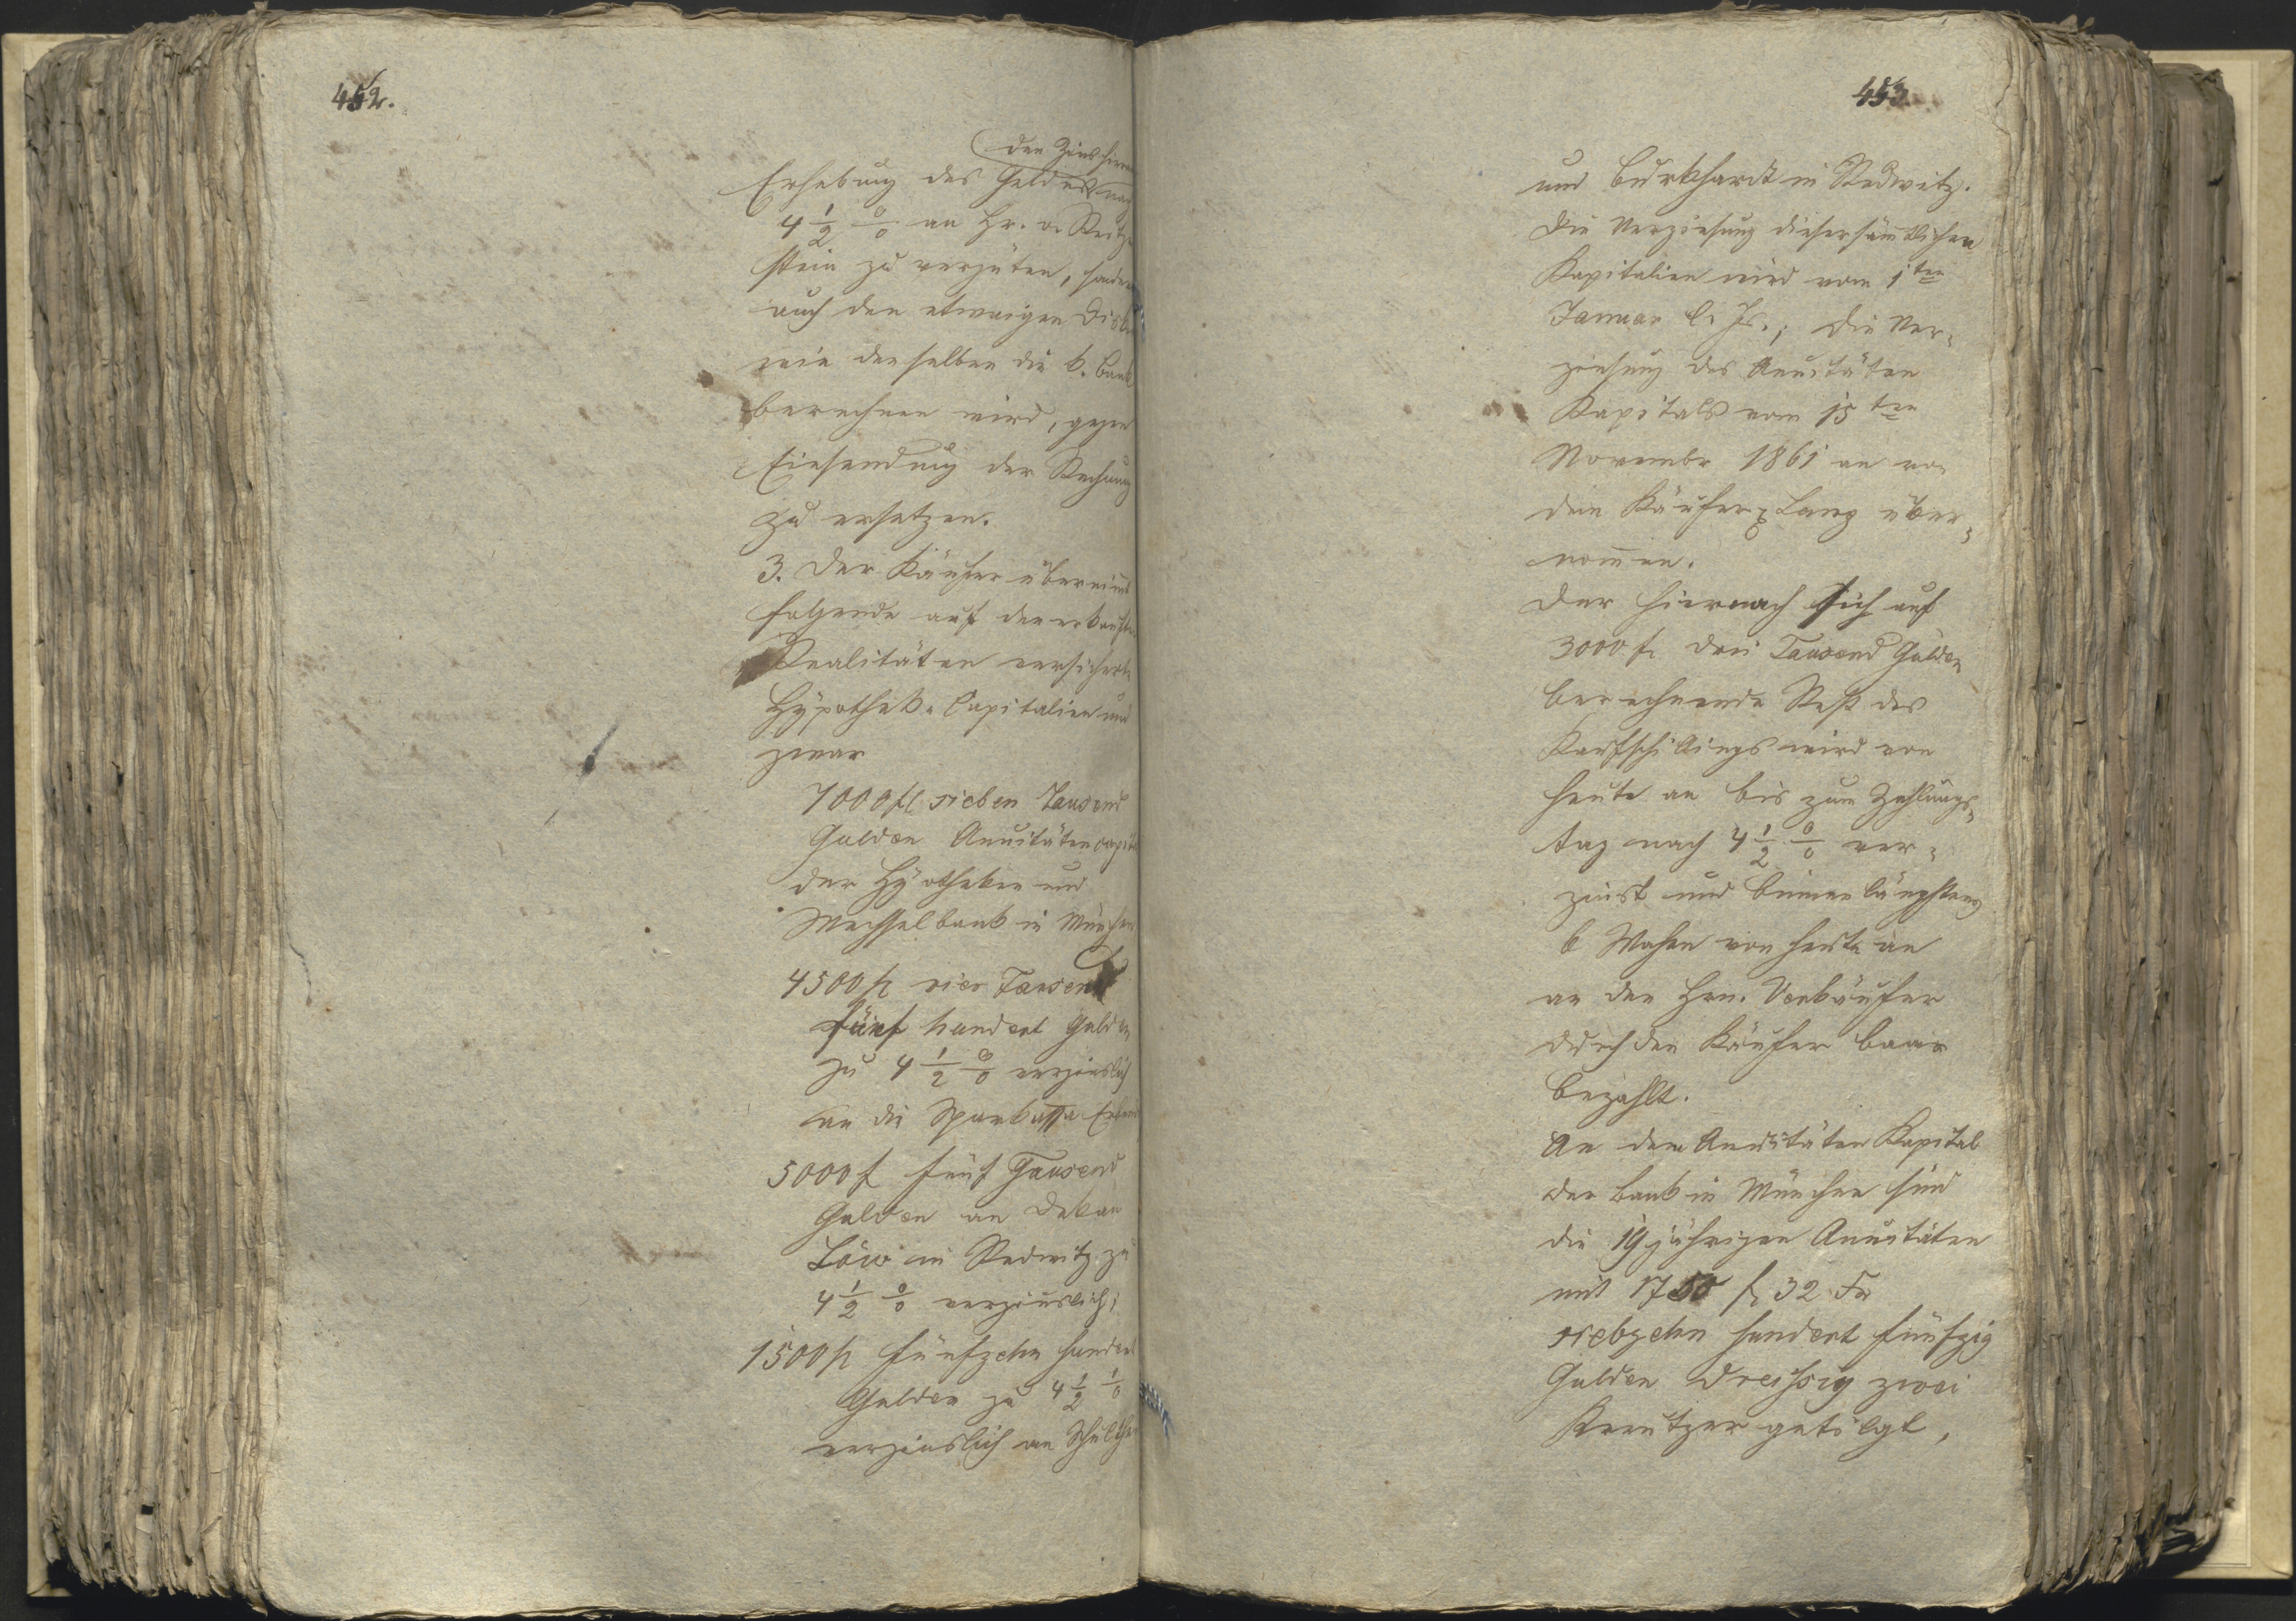 452.
den Zins hievon
Erhebung des Geldes nach
4 1/2 0/0 an Hr. v. Reitzen
stein zu vergüten, sondern
auch den etwaigen Disk
wie denselben die k. Bank
berechnen wird, gegen
Einsendung der Rechnung
zu ersetzen.
3. Der Käufer übernimt
folgende auf den erkauften
Realitäten versicherte
Hypothek-Capitalien und
zwar
7000 fl sieben Tausend
Gulden Annuitätencapital
der Hypotheken und
Wechselbank in München
4500 fl vier Tausend
fünf hundert Gulden
zu 4 1/2 0/0 verzinslich
an die Sparkassa
5000 f fünf Tausend
Gulden an Dekan
Löw in Redwitz zu
4 1/2 0/0 verzinslich;
1500 fl fünfzehn hundert
Gulden zu 4 1/2 0/0
verzinslich an
453
und Burkhardt in Redwitz.
Die Verzinsung dieser sämtlichen
Kapitalien wird vom 1ten
Januar l. Js.; die Ver-
zinsung des Annuitäten
Kapitals vom 15ten
Novembr 1861 an von
dem Käufer Lang über-
nommen.
Der hiernach sich auf
3000 fl drei Tausend Gulden
berechnende Rest des
Kaufschillings wird von
heute an bis zum Zahlungs-
tag nach 4 1/2 0/0 ver-
zinst und binnen längstens
6 Wochen von heute an
an den Hrn. Verkäufer
durch den Käufer baar
bezahlt.
An dem Annuitäten Kapital
der Bank in München sind
die 19 jährigen Annuitäten
mit 1750 fl 32 xr
siebzehn hundert fünfzig
Gulden dreissig zwei
Kreutzer getilgt,